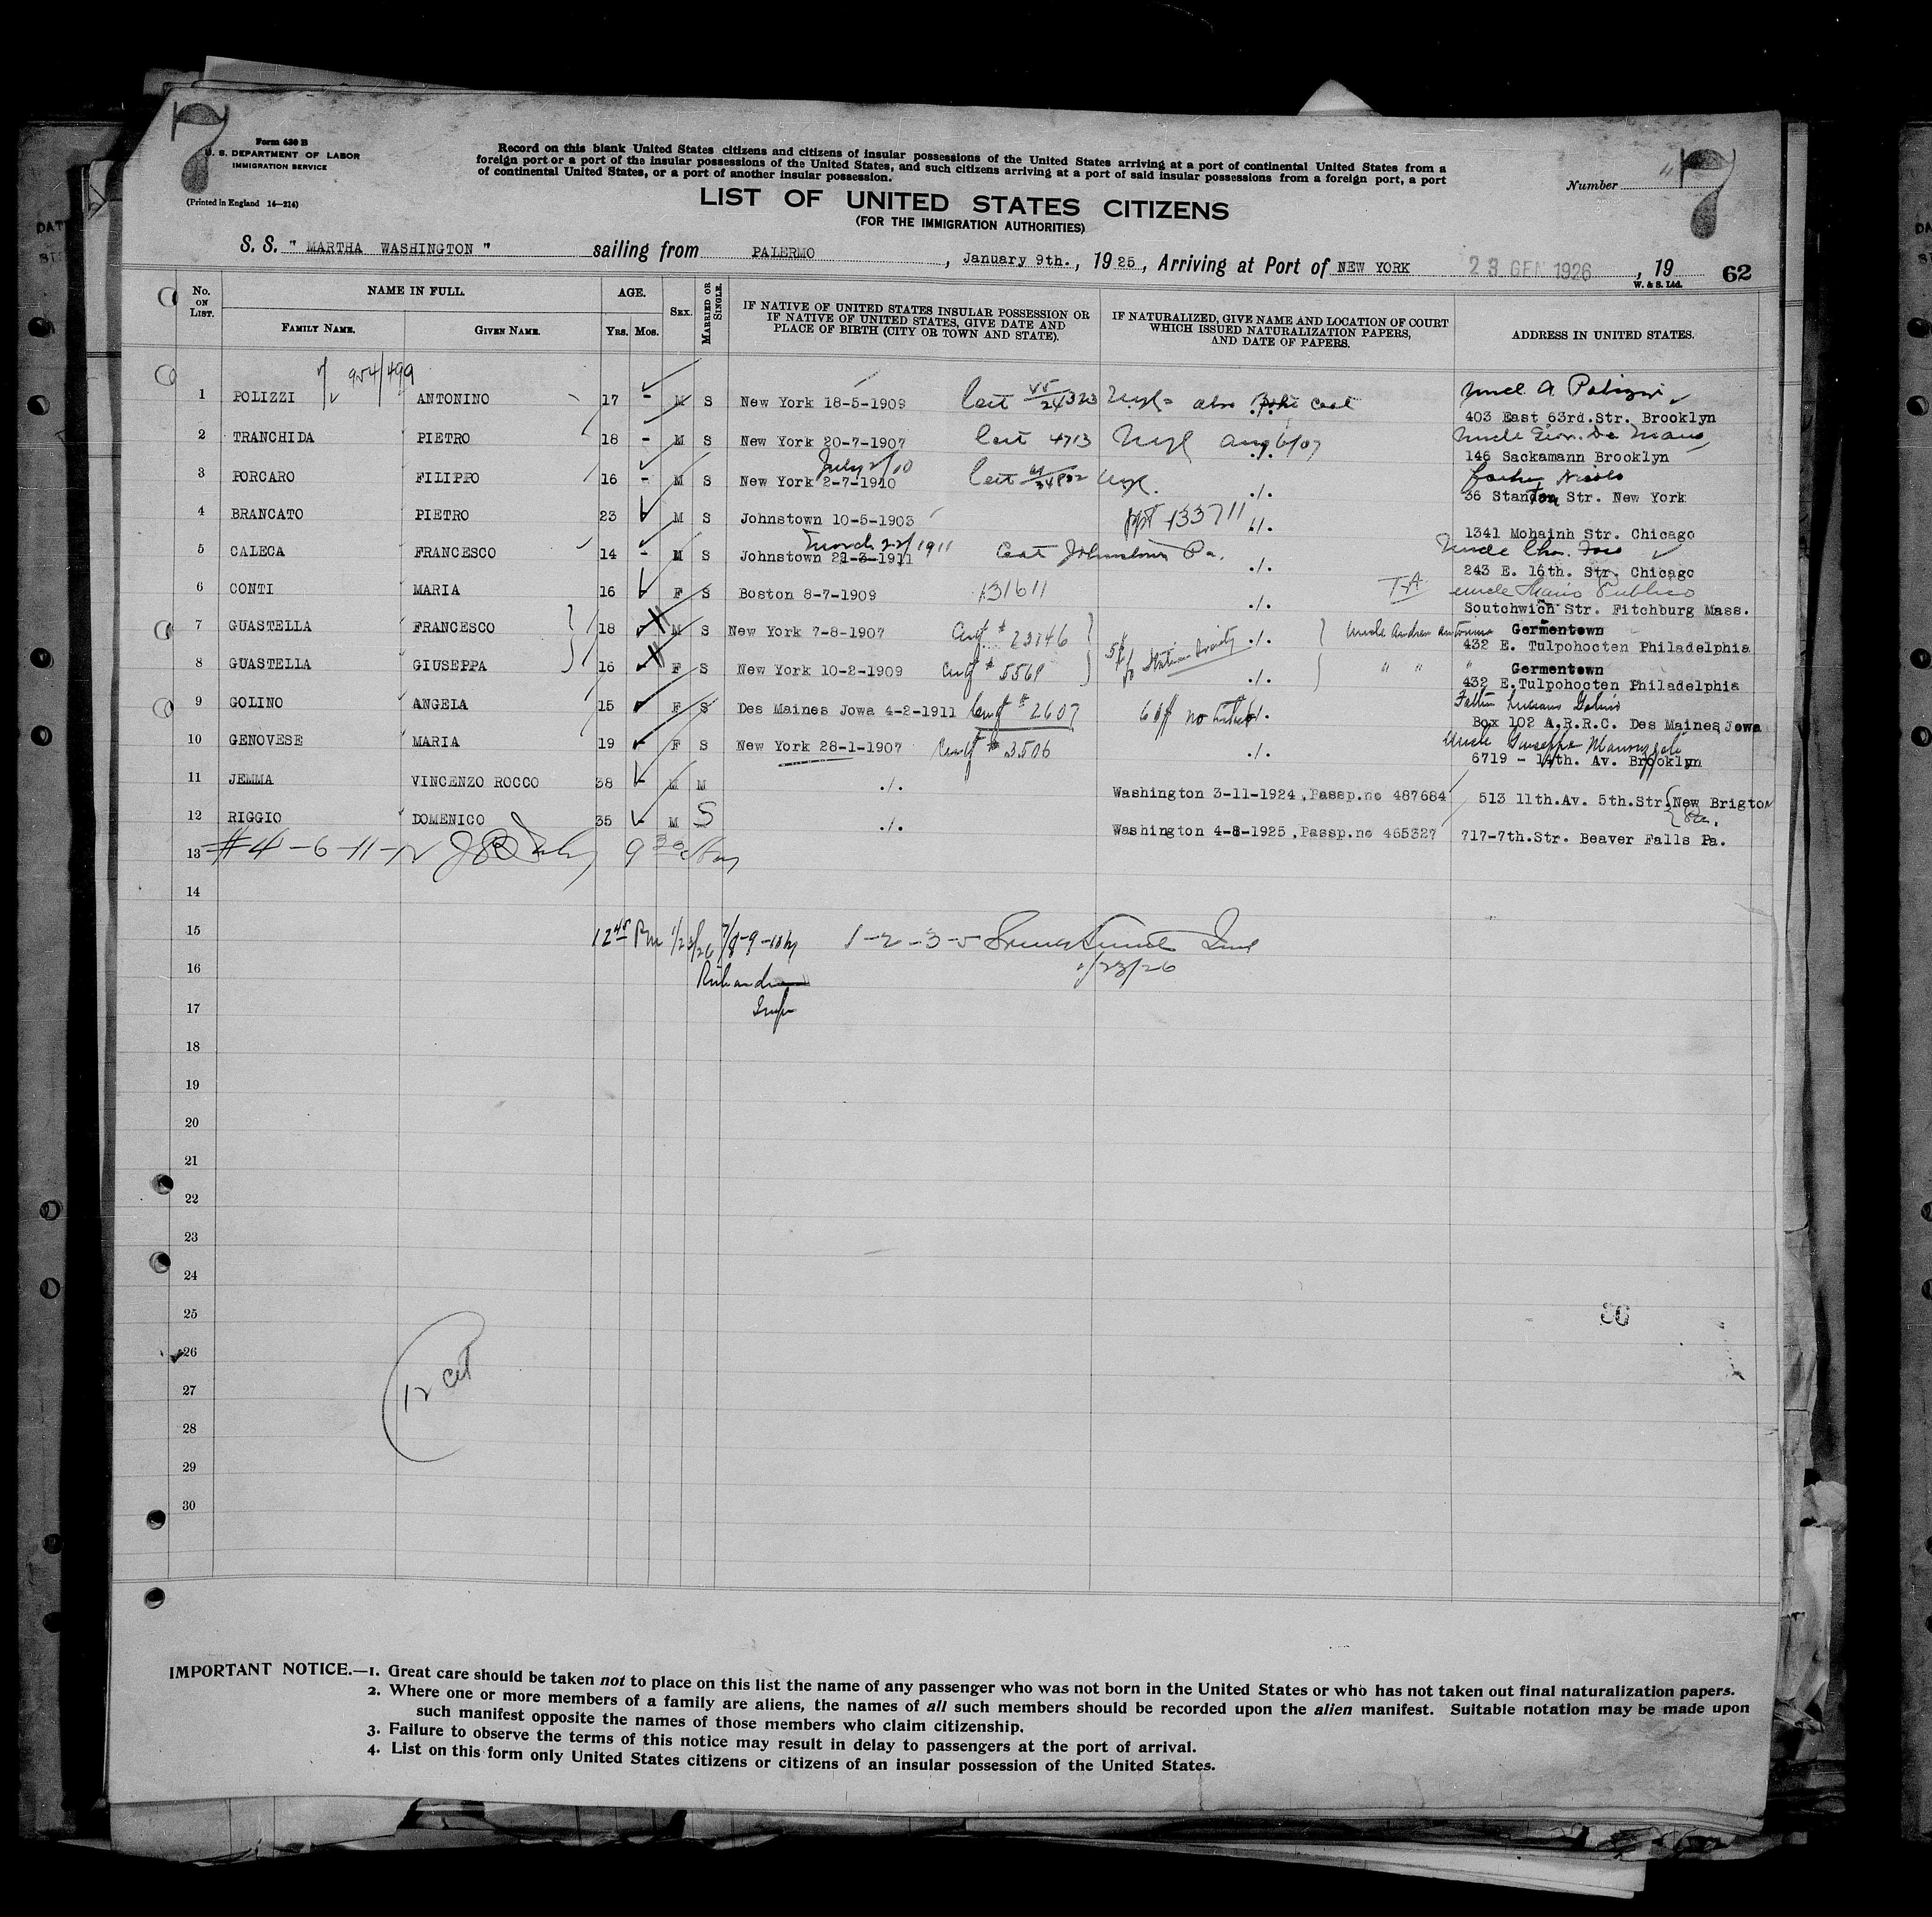 Form 630 B
U. S. DEPARTMENT OF LABOR
IMMIGRATION SERVICE
(Printed in England 14—214)
Record on this blank United States citizens and citizens of insular possessions of the United States arriving at a port of continental United States from a
foreign port or a port of the insular possessions of the United States, and such citizens arriving at a port of said insular possessions from a foreign port, a port
of continental United States, or a port of another insular possession.
Number
7
7
LIST OF UNITED STATES CITIZENS
(FOR THE IMMIGRATION AUTHORITIES)
S. S. " MARTHA WASHINGTON " sailing from PALERMO , January 9th. , 1925 , Arriving at Port of NEW YORK 23 GEN 1926 , 19 62
W. & S. Ltd.
No. ON LIST. NAME IN FULL. AGE. SEX. MARRIED OR SINGLE. IF NATIVE OF UNITED STATES INSULAR POSSESSION OR IF NATIVE OF UNITED STATES, GIVE DATE AND PLACE OF BIRTH (CITY OR TOWN AND STATE). IF NATURALIZED, GIVE NAME AND LOCATION OF COURT WHICH ISSUED NATURALIZATION PAPERS, AND DATE OF PAPERS. ADDRESS IN UNITED STATES.
FAMILY NAME. GIVEN NAME. YRS. MOS.
954/499
Uncle A. Polizzi
1 POLIZZI ANTONINO 17 - M S New York 18-5-1909 also
403 East 63rd.Str. Brooklyn
2 TRANCHIDA PIETRO 18 - M S New York 20-7-1907 4713 Aug 6/07 Uncle
146 Sackamann Brooklyn
July 2/10
3 PORCARO FILIPPO 16 - M S New York 2-7-1910 ./.
36 Stanton Str. New York
4 BRANCATO PIETRO 23 M S Johnstown 10-5-1903 ppt 133711 ./.
1341 Mohainh Str. Chicago
March 22/1911
5 CALECA FRANCESCO 14 - M S Johnstown 22-3-1911 Johnstown Pa. ./. Uncle
243 E. 16th. Str. Chicago
6 CONTI MARIA 16 F S Boston 8-7-1909 131611 ./. uncle
Soutchwich Str. Fitchburg Mass.
7 GUASTELLA FRANCESCO 18 M S New York 7-8-1907 # 23146 ./. Uncle Andrea Germentown
432 E. Tulpohocten Philadelphia
8 GUASTELLA GIUSEPPA 16 F S New York 10-2-1909 # 5569 ./. " " " Germentown
432 E.Tulpohocten Philadelphia
9 GOLINO ANGELA 15 F S Des Maines Jowa 4-2-1911 # 2607 ./. Father
Box 102 A.R.R.C. Des Maines Jowa
10 GENOVESE MARIA 19 - F S New York 28-1-1907 # 3506 ./. Uncle Giuseppe
6719 - 14th. Av. Brooklyn
11 JEMMA VINCENZO ROCCO 38 - M M ./. Washington 3-11-1924 ,Passp.no 487684 513 11th.Av. 5th.Str.New Brigton Pa.
12 RIGGIO DOMENICO 35 - M S ./. Washington 4-8-1925 ,Passp.no 465327 717-7th.Str. Beaver Falls Pa.
13 #4-6-11-12
14
15 12 45 PM 1/23/26 7/8-9-10 1-2-3-5
16 1/23/26
17
18
19
20
21
22
23
24
25 36
26
27
28
29
30
IMPORTANT NOTICE.—1. Great care should be taken not to place on this list the name of any passenger who was not born in the United States or who has not taken out final naturalization papers.
2. Where one or more members of a family are aliens, the names of all such members should be recorded upon the alien manifest. Suitable notation may be made upon
such manifest opposite the names of those members who claim citizenship.
3. Failure to observe the terms of this notice may result in delay to passengers at the port of arrival.
4. List on this form only United States citizens or citizens of an insular possession of the United States.